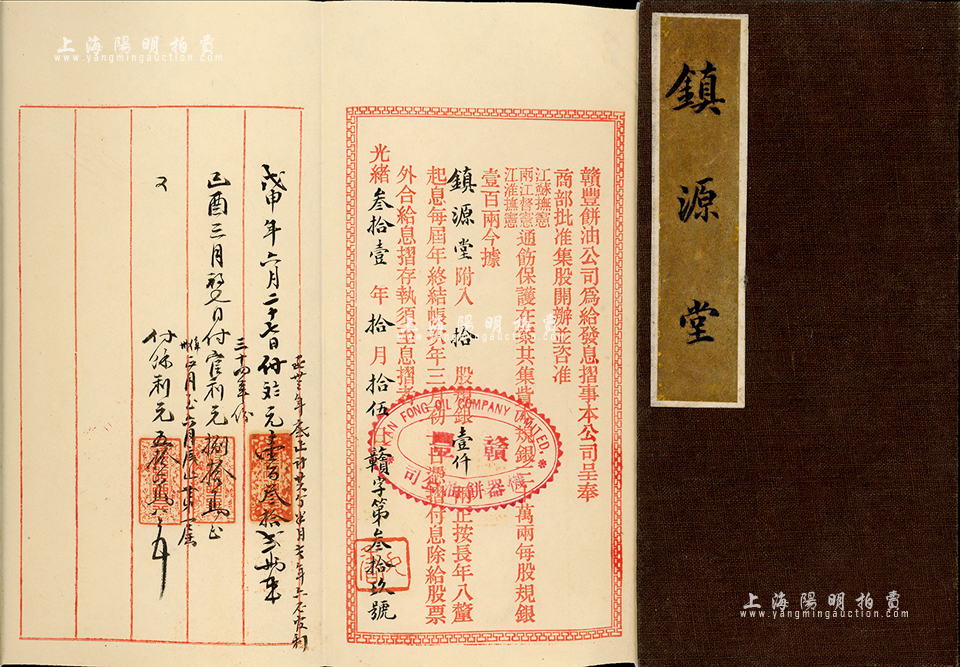 鎮源堂
贛豐餅油公司為給發息摺事本公司呈奉
商部批准集股開辦並咨准
江蘇撫憲
兩江督憲
江淮撫憲
通飭保護在案共集貲本規銀三十萬兩每股規銀
壹百兩今據
鎮源堂附入拾股計銀壹仟兩正按長年八釐
起息每屆年終結帳次年三月初一日憑摺付息除給股票
外合給息摺存執須至息摺者
光緒叁拾壹年拾月拾伍日贛字第叁拾玖號
KEN FONG OIL COMPANY LIMITED.
贛豐
機器餅油公司
戊申年六月二十七日付
三十四年份
己酉三月初九日付官利元捌拾
付餘利元五拾
上海陽明拍賣
www.yangmingauction.com
上海陽明拍賣
www.yangmingauction.com
上海陽明拍賣
www.yangmingauction.com